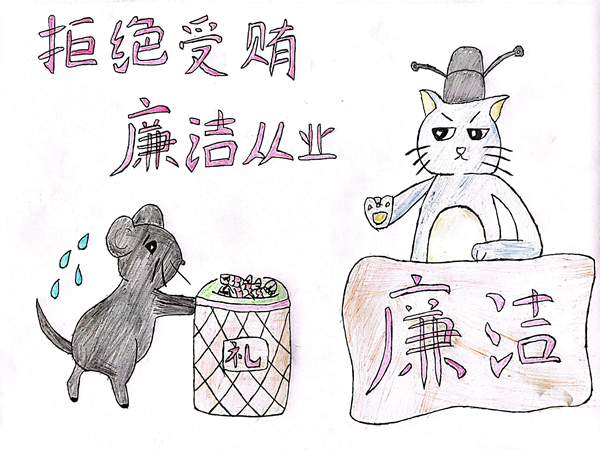 拒绝受贿
廉洁从业
礼
廉洁